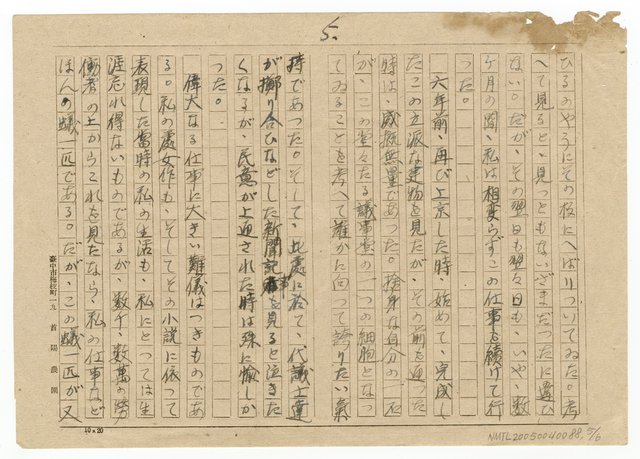 5.
ひるのやうにその板にへばりついてゐた。考
へて見ると、見つともないざまだつたに違ひ
ない。だが、その翌日も翌々日も、いや、数
ケ月の間、私は相変らずこの仕事を続けて行
つた。
六年前、再び上京した時、始めて、完成し
たこの立派な建物を見たが、その前を通つた
時は、感慨無量であつた。捨身な自分の一石
が、この堂々たる議事堂の一つの細胞となつ
てゐることを考へて誰かに向つて誇りたい気
持であつた。そして、此處に於て、代議士達
が擲り合ひなどした新聞記事を見ると泣きた
くなるが、民意が上通された時は殊に嬉しか
つた。
偉大なる仕事に大きい難儀はつきものであ
る。私の處女作も、そしてその小説に依つて
表現した當時の私の生活も、私にとつては生
涯忘れ得ないものであるが、数千、数萬の労
働者の上からこれを見たなら、私の仕事など
ほんの蟻一匹である。だが、この蟻一匹が又
臺中市梅枝町一九 首陽農園
10×20
NMTL20050040088, 5/6